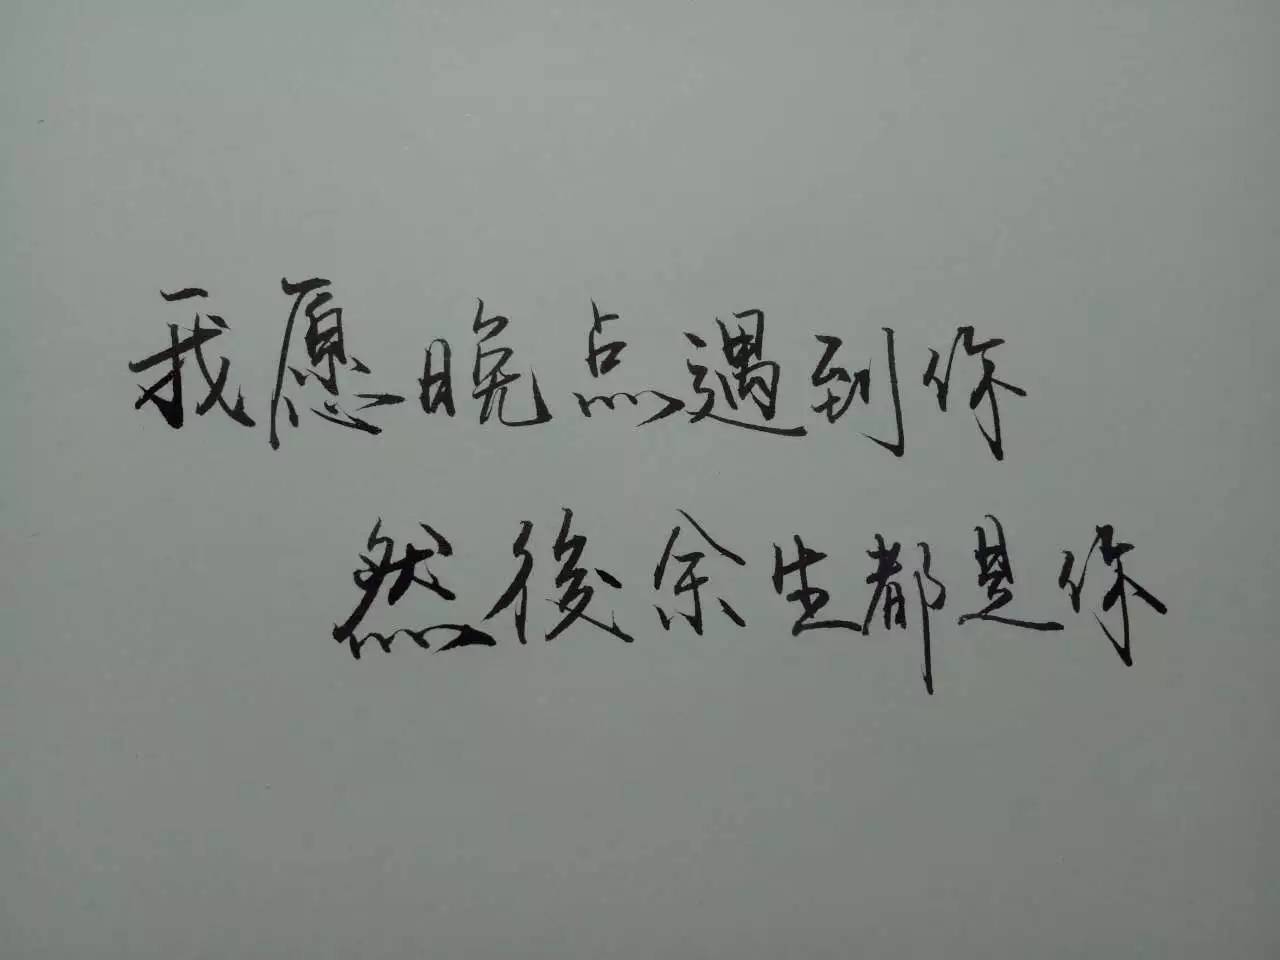 我愿晚点遇到你
然後余生都是你